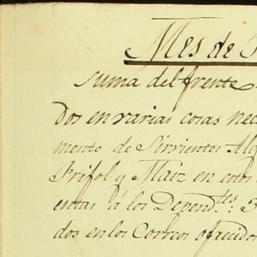 Mes de
suma del frente
Dos en varias cosas nec
mento de Sirvientes Alq
Frifol y Maiz en estos
entas á los Depend.tes 3
dos en los Correos ofrecidos